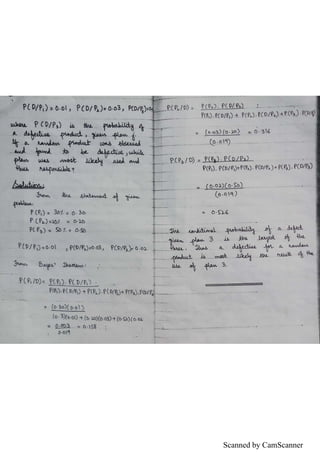 P(D/P₁)=0.01 , P(D/P₂)=0.03, P(D/P₃)=0.0
where P(D/P₃) is the probability of
A defective product, given plan f
If a random product was observed
and found to be defective, while
plan was most likely used and
thus responsible?
Solution:
From the statement of given
problem.
P(P₁) = 30% = 0.30
P(P₂) = 20% = 0.20
P(P₃) = 50% = 0.50
P(D/P₁)=0.01 , P(D/P₂)=0.03, P(D/P₃)=0.02
From Bayes' Theorem:
P(P₁/D) = P(P₁). P(D/P₁)
P(P₁).P(D/P₁) + P(P₂).P(D/P₂)+P(P₃).P(D/P₃
= (0.30)(0.01)
(0.3)(0.01) + (0.20)(0.03) + (0.50)(0.02
= 0.003 = 0.158
0.019
P(P₂/D) = P(P₂). P(D/P₂)
P(P₁).P(D/P₁) + P(P₂).P(D/P₂)+P(P₃).P(D/P₃)
= (0.03)(0.20) = 0.316
(0.019)
P(P₃/D) = P(P₃). P(D/P₃)
P(P₁).P(D/P₁)+P(P₂).P(D/P₂)+P(P₃).P(D/P₃)
= (0.02)(0.50)
(0.019)
= 0.526
The conditional probability of a defect
given plan 3 is the largest of the
three. Thus a defective for a random
product is most likely the result of the
use of plan 3.
Scanned by CamScanner